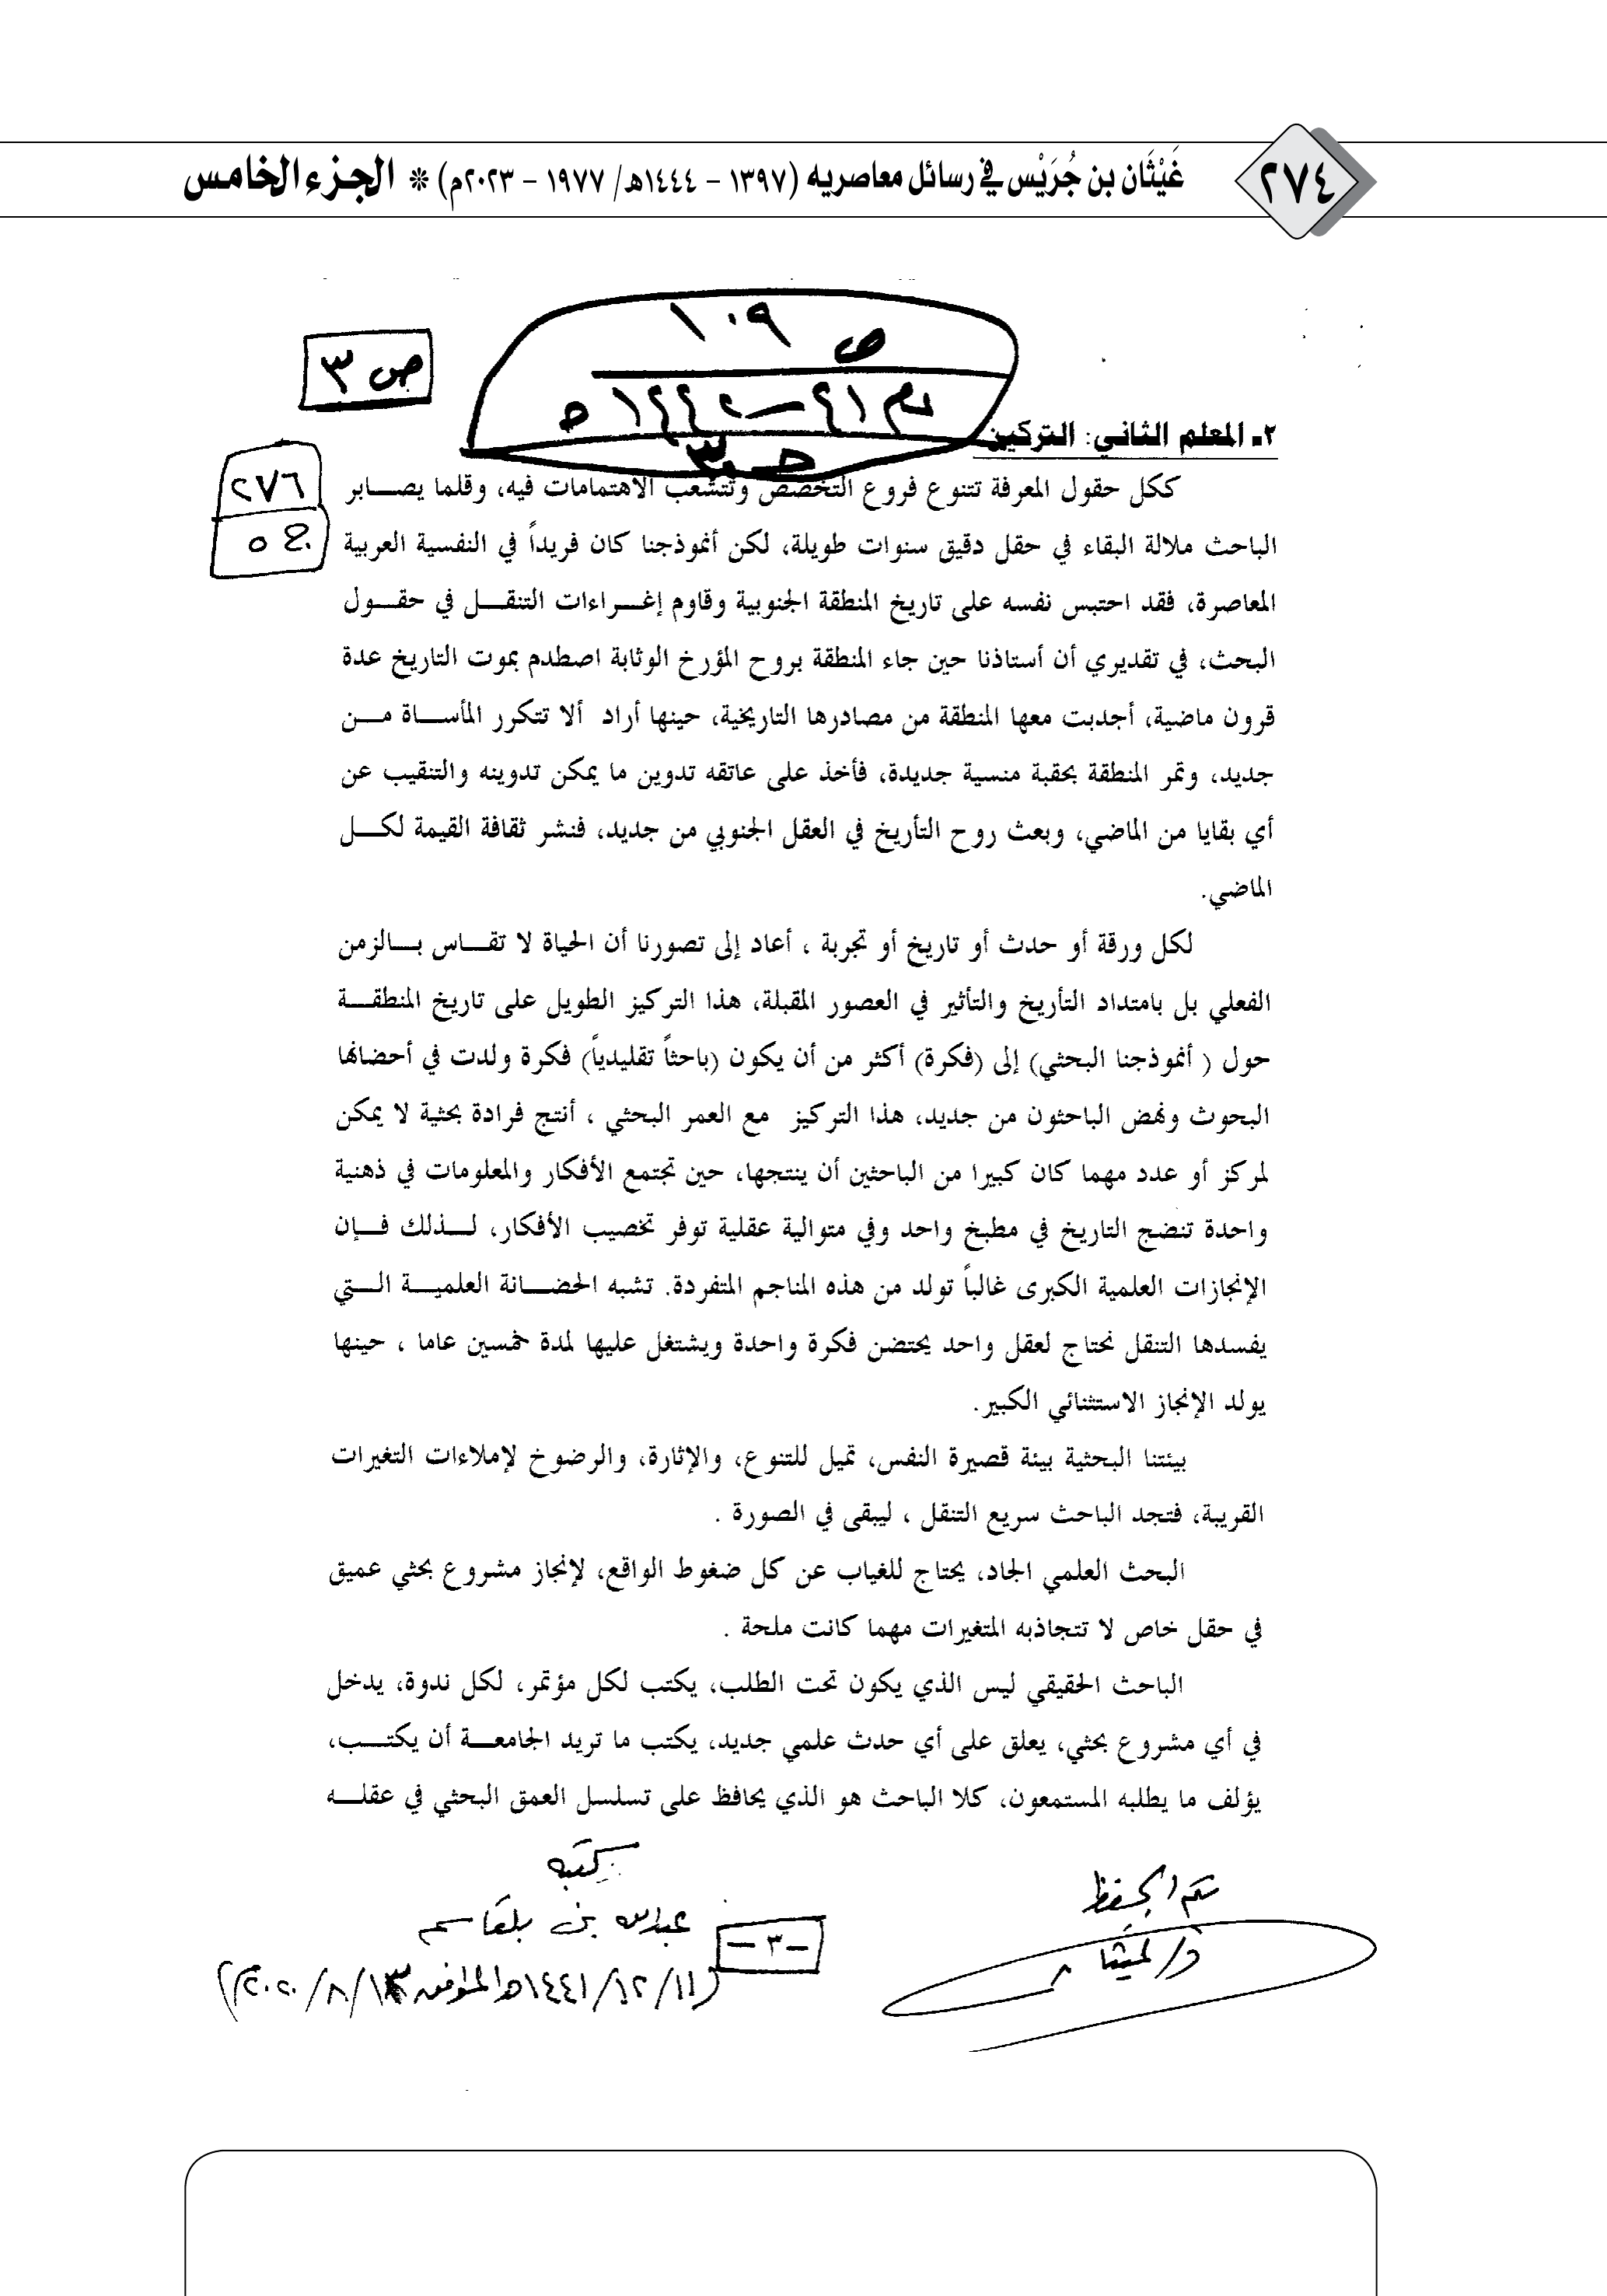 ٢٧٤
غَيْثَان بن جُرَيْس في رسائل معاصريه (١٣٩٧ - ١٤٤٤هـ/ ١٩٧٧ - ٢٠٢٣م) * الجزء الخامس
ص ١٠٩
ص ٣
٢- المعلم الثاني: التركيز
ككل حقول المعرفة تتنوع فروع التخصص وتتشعب الاهتمامات فيه، وقلما يصابر
٢٧٦
ج ٥
الباحث ملالة البقاء في حقل دقيق سنوات طويلة، لكن أنموذجنا كان فريداً في النفسية العربية
المعاصرة، فقد احتبس نفسه على تاريخ المنطقة الجنوبية وقاوم إغراءات التنقل في حقول
البحث، في تقديري أن أستاذنا حين جاء المنطقة بروح المؤرخ الوثابة اصطدم بموت التاريخ عدة
قرون ماضية، أجدبت معها المنطقة من مصادرها التاريخية، حينها أراد ألا تتكرر المأساة من
جديد، وتمر المنطقة بحقبة منسية جديدة، فأخذ على عاتقه تدوين ما يمكن تدوينه والتنقيب عن
أي بقايا من الماضي، وبعث روح التأريخ في العقل الجنوبي من جديد، فنشر ثقافة القيمة لكل
الماضي.
لكل ورقة أو حدث أو تاريخ أو تجربة ، أعاد إلى تصورنا أن الحياة لا تقاس بالزمن
الفعلي بل بامتداد التأريخ والتأثير في العصور المقبلة، هذا التركيز الطويل على تاريخ المنطقة
حول ( أنموذجنا البحثي) إلى (فكرة) أكثر من أن يكون (باحثاً تقليدياً) فكرة ولدت في أحضانها
البحوث ونهض الباحثون من جديد، هذا التركيز مع العمر البحثي ، أنتج فرادة بحثية لا يمكن
لمركز أو عدد مهما كان كبيرا من الباحثين أن ينتجها، حين تجتمع الأفكار والمعلومات في ذهنية
واحدة تنضج التاريخ في مطبخ واحد وفي متوالية عقلية توفر تخصيب الأفكار، لذلك فإن
الإنجازات العلمية الكبرى غالباً تولد من هذه المناجم المتفردة. تشبه الحضانة العلمية التي
يفسدها التنقل نحتاج لعقل واحد يحتضن فكرة واحدة ويشتغل عليها لمدة خمسين عاما ، حينها
يولد الإنجاز الاستثنائي الكبير.
بيئتنا البحثية بيئة قصيرة النفس، تميل للتنوع، والإثارة، والرضوخ لإملاءات التغيرات
القريبة، فتجد الباحث سريع التنقل ، ليبقى في الصورة .
البحث العلمي الجاد، يحتاج للغياب عن كل ضغوط الواقع، لإنجاز مشروع بحثي عميق
في حقل خاص لا تتجاذبه المتغيرات مهما كانت ملحة .
الباحث الحقيقي ليس الذي يكون تحت الطلب، يكتب لكل مؤتمر، لكل ندوة، يدخل
في أي مشروع بحثي، يعلق على أي حدث علمي جديد، يكتب ما تريد الجامعة أن يكتب،
يؤلف ما يطلبه المستمعون، كلا الباحث هو الذي يحافظ على تسلسل العمق البحثي في عقله
كتبه
عبدالله بن بلقاسم
- ٣ -
(١١/١٢/١٤٤١هـ الموافق